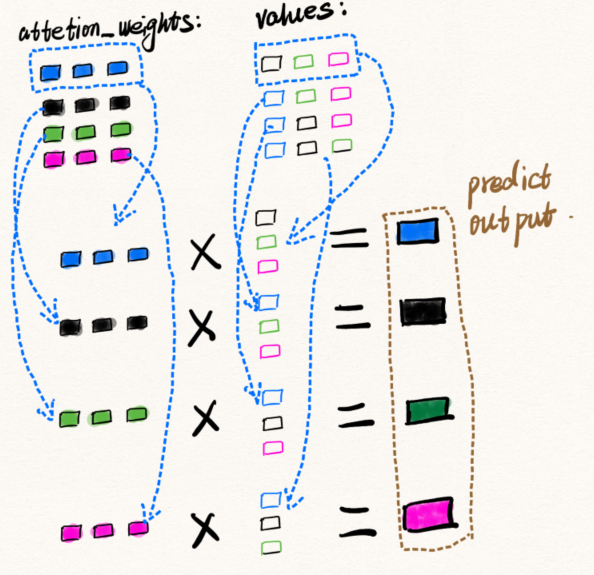 attetion_weights:
values:
×
=
×
=
×
=
×
=
predict
output.